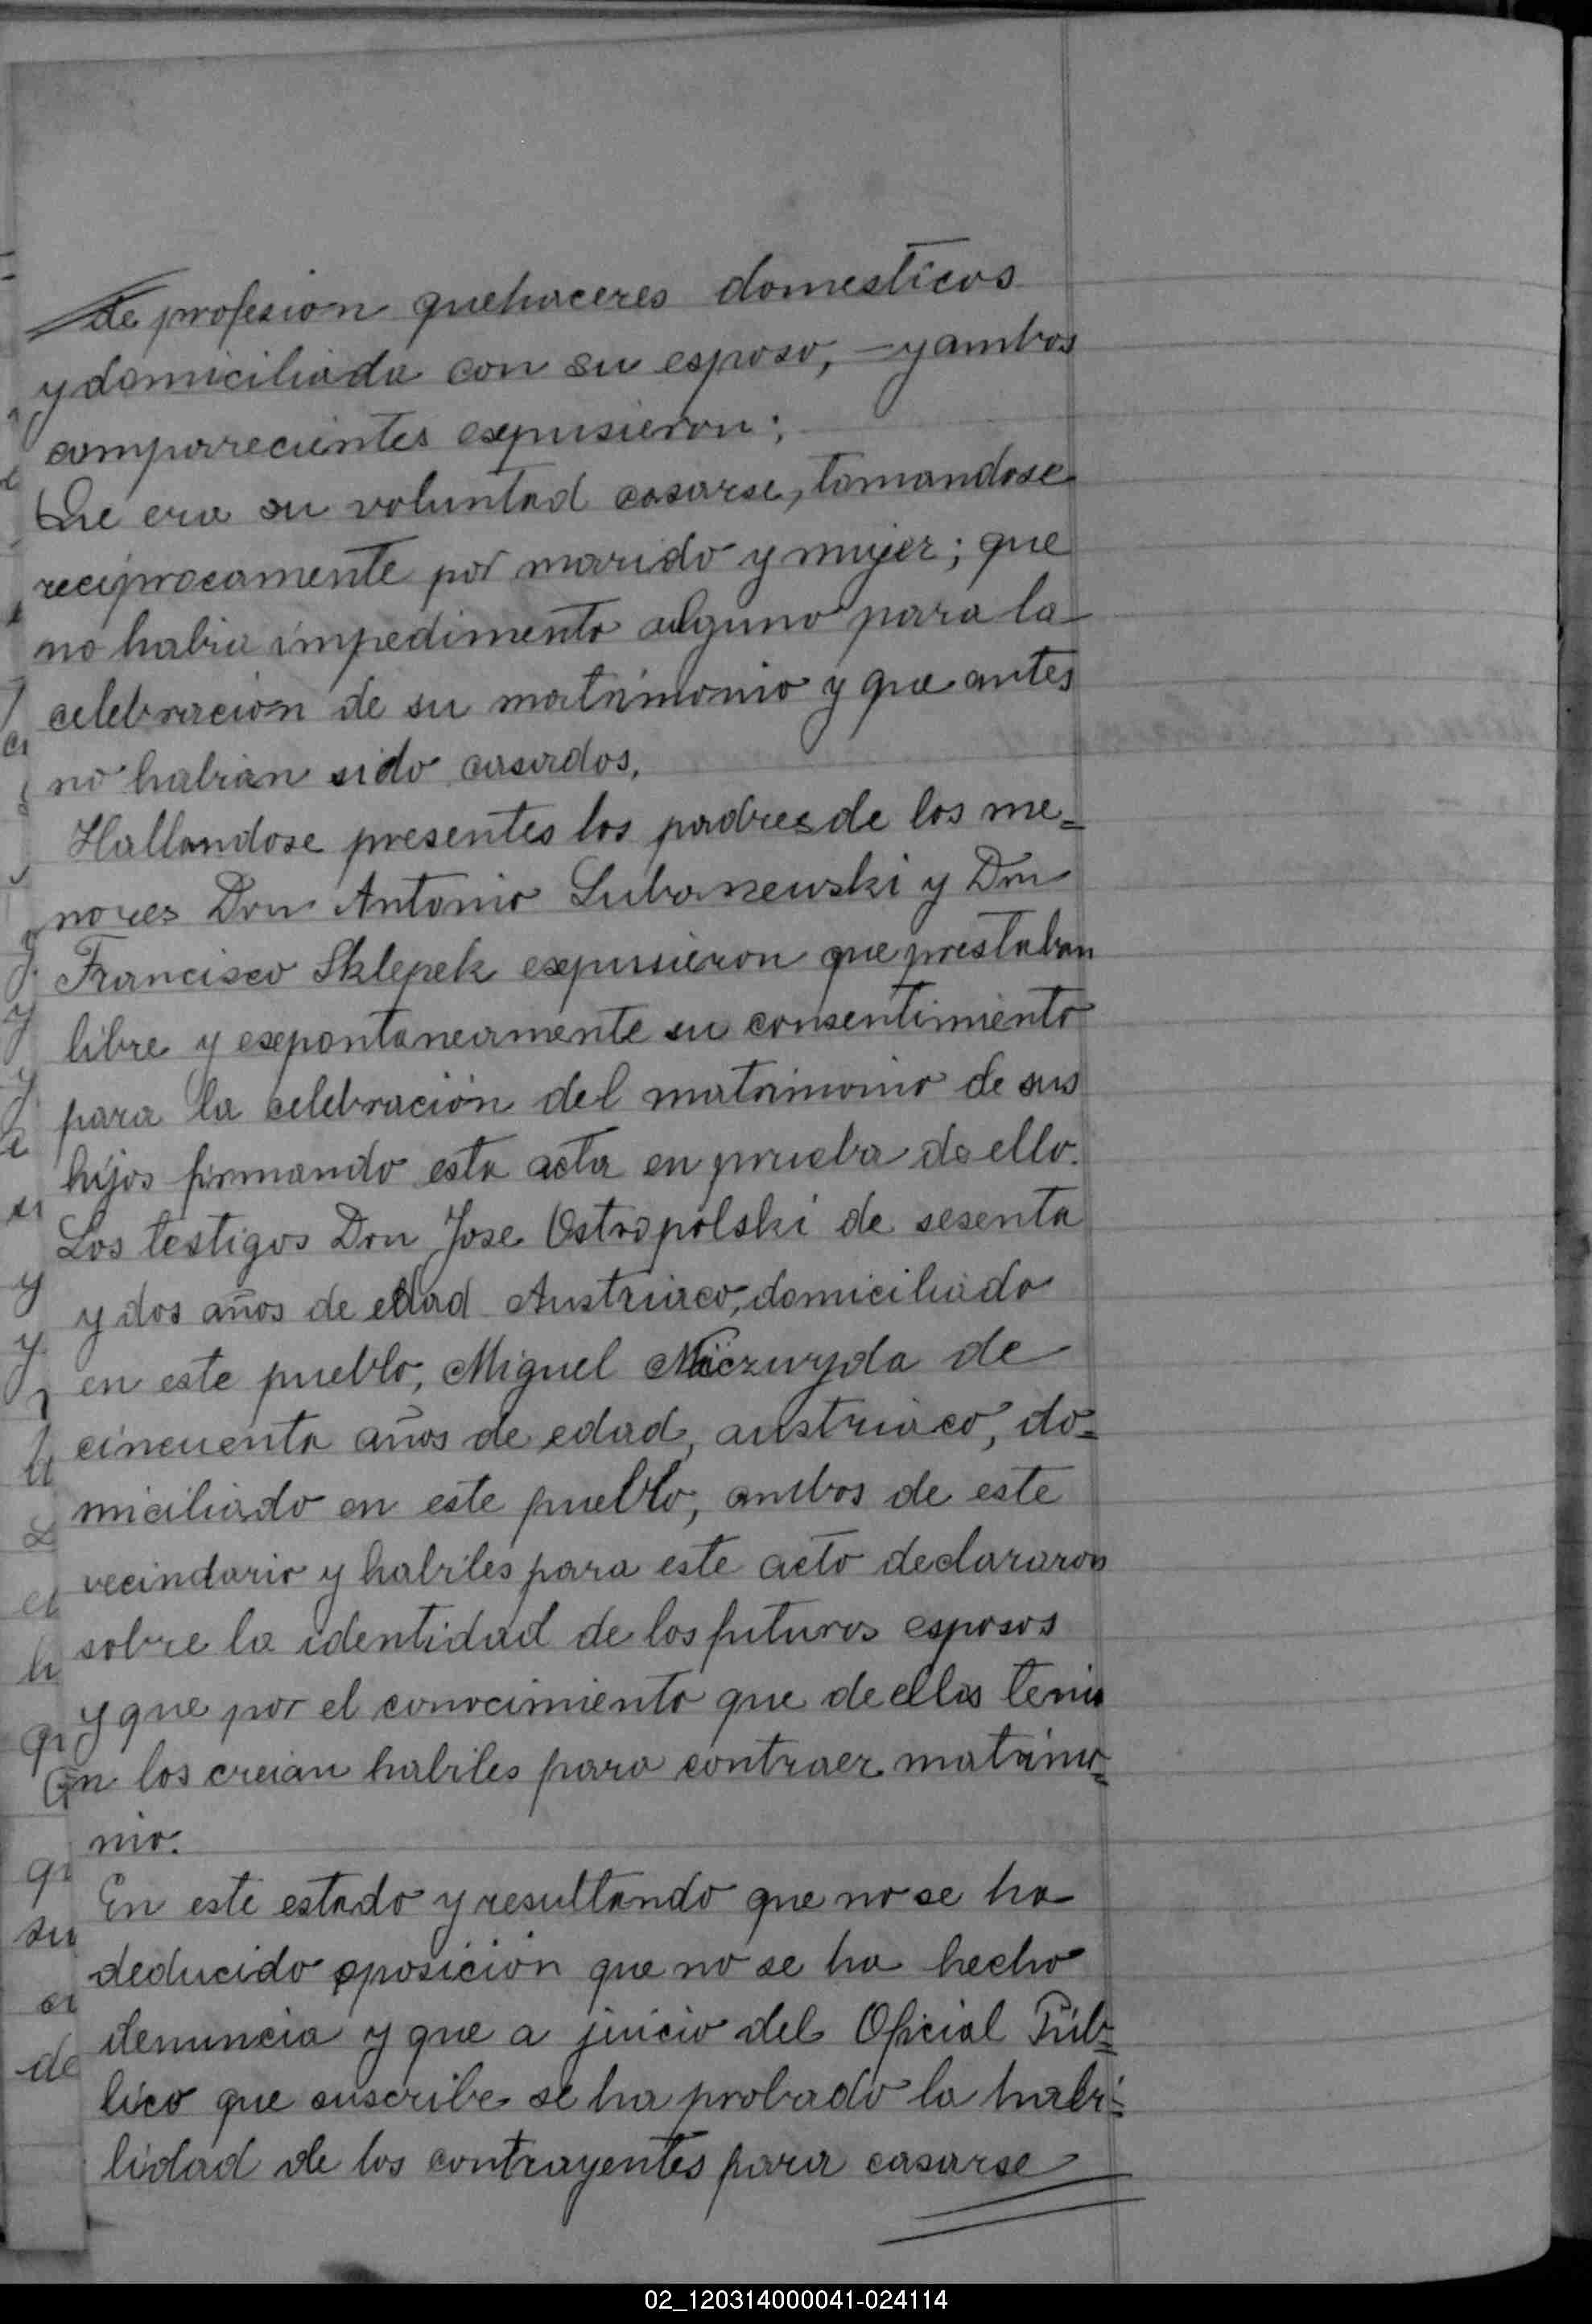 de profesion quehaceres domesticos
y domiciliada con su esposo, — y ambos
comparecientes expusieron:
Que era su voluntad casarse, tomandose
reciprocamente por marido y mujer; que
no habia impedimento alguno para la
celebración de su matrimonio y que antes
no habian sido casados.
Hallandose presentes los padres de los me=
nores Don Antonio Lubaszewski y Don
Francisco Sklepek expusieron que prestaban
libre y expontaneamente su consentimiento
para la celebración del matrimonio de sus
hijos firmando esta acta en prueba de ello.
Los testigos Don Jose Ostropolski de sesenta
y dos años de edad Austriaco, domiciliado
en este pueblo, Miguel de
cincuenta años de edad, austriaco, do=
miciliado en este pueblo, ambos de este
vecindario y habiles para este acto declararon
sobre la identidad de los futuros esposos
y que por el conocimiento que de ellos tenia
n los creian habiles para contraer matrimo=
nio.
En este estado y resultando que no se ha
deducido oposición que no se ha hecho
denuncia y que a juicio del Oficial Púb=
lico que suscribe se ha probado la habi=
lidad de los contrayentes para casarse
02_120314000041-024114